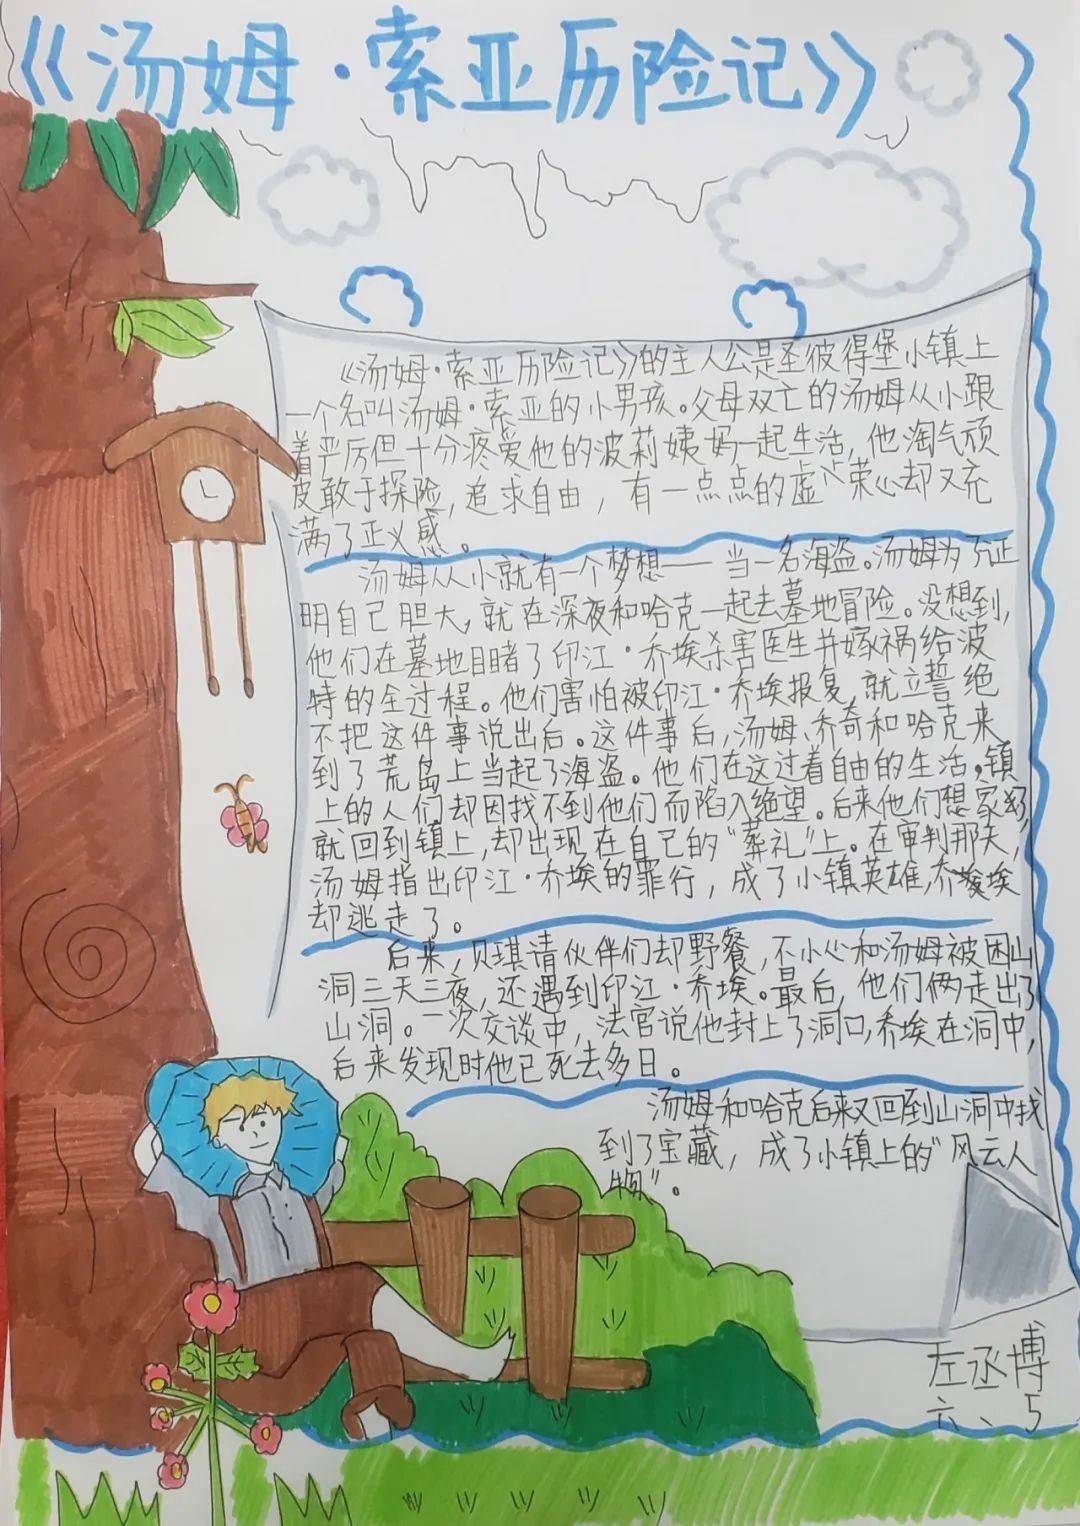 《汤姆·索亚历险记》
《汤姆·索亚历险记》的主人公是圣彼得堡小镇上
一个名叫汤姆·索亚的小男孩。父母双亡的汤姆从小跟
着严厉但十分疼爱他的波莉姨妈一起生活,他淘气顽
皮敢于探险,追求自由,有一点点的虚荣心却又充
满了正义感。
汤姆从小就有一个梦想——当一名海盗。汤姆为了证
明自己胆大,就在深夜和哈克一起去墓地冒险。没想到,
他们在墓地目睹了印江·乔埃杀害医生并嫁祸给波
特的全过程。他们害怕被印江·乔埃报复,就立誓绝
不把这件事说出后。这件事后,汤姆、乔奇和哈克来
到了荒岛上当起了海盗。他们在这过着自由的生活,镇
上的人们却因找不到他们而陷入绝望。后来他们想家了,
就回到镇上,却出现在自己的“葬礼”上。在审判那天,
汤姆指出印江·乔埃的罪行,成了小镇英雄,乔埃
却逃走了。
后来,贝琪请伙伴们却野餐,不小心和汤姆被困山
洞三天三夜,还遇到印江·乔埃。最后,他们俩走出了
山洞。一次交谈中,法官说他封上了洞口,乔埃在洞中,
后来发现时他已死去多日。
汤姆和哈克后来又回到山洞中找
到了宝藏,成了小镇上的“风云人
物”。
左丞博
六、5